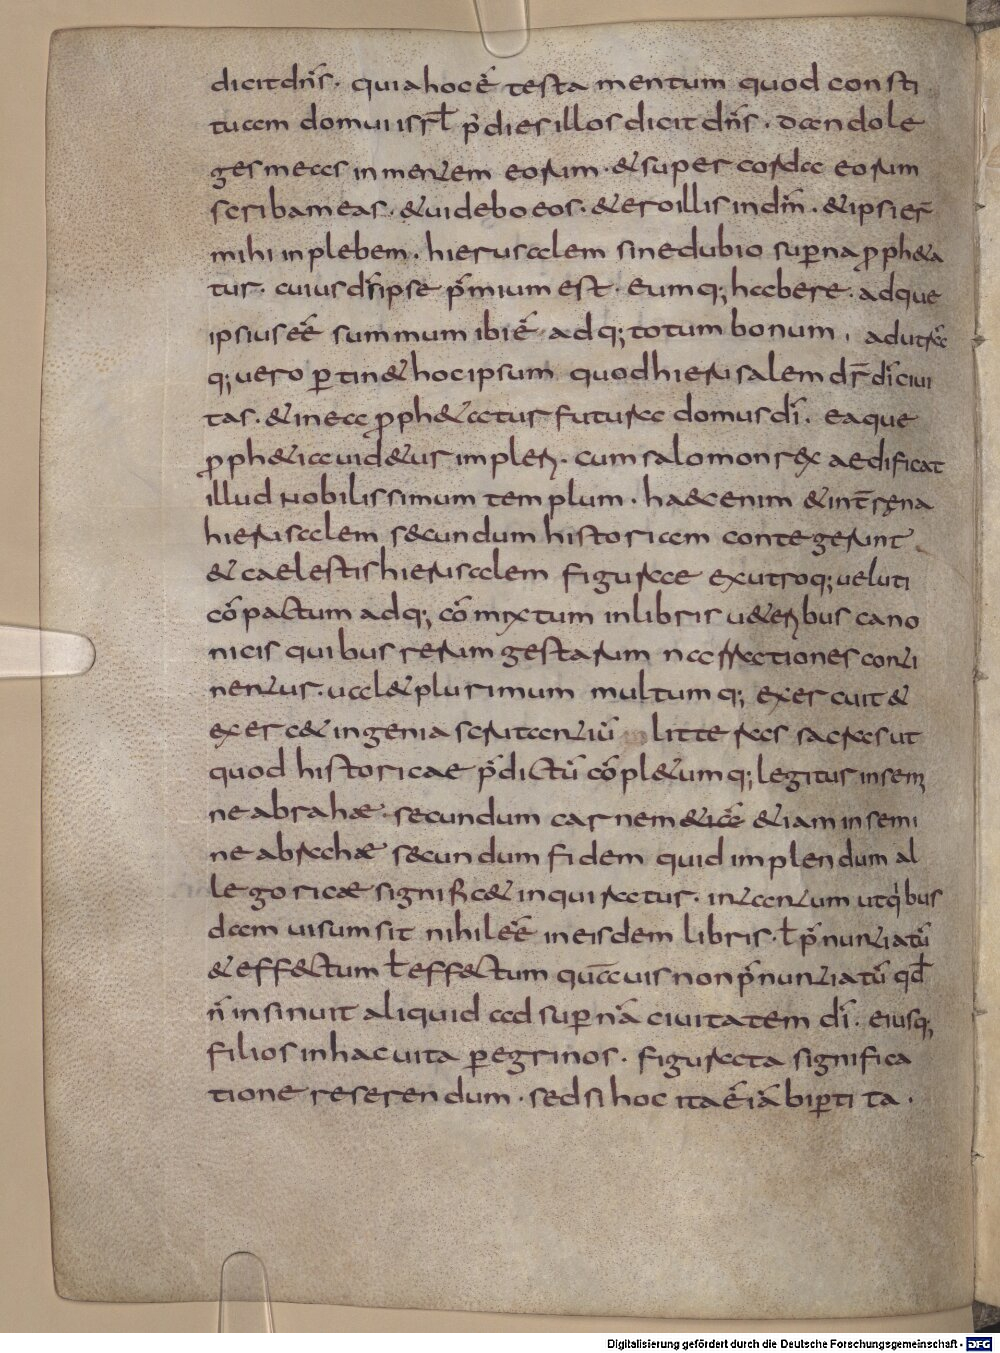 dicit dn̄s· quia hoc ē testamentum quod consti
tuam domui isrl̄ p̄ dies illos dicit dn̄s· dando le
ges meas in mentem eorum· & super corda eorum
scribam eas· & uidebo eos· & ero illis in dm̄· & ipsi er̄
mihi in plebem· hierusalem sine dubio superna proph&a
tur· cuius ds̄ ipse p̄mium est· eumq; habere· adque
ipsius ēē summum ibi ē adq; totum bonum, ad utrā
q; uero ꝑtin& hoc ipsum quod hierusalem dr̄ dī ciui
tas· & in ea proph&atur futura domus dī· eaque
proph&ia uid&ur impleri· cum salomon rex aedificat
illud nobilissimum templum· haec enim & in t̄rena
hierusalem s&cundum historicam contegerunt
& caelestis hierusalem figurae ex utroq; ueluti
cōpactum adq; cōmixtum in libris u&eribus cano
nicis quibus rerum gestarum narrationes conti
nentur· ual& plurimum multumq; exercuit &
exerc& ingenia scrutantiū litteras sacras ut
quod historicae p̄dictū cōpl&umq; legitur in semi
ne abrahæ· secundum carnem &iā &iam in semi
ne abrahæ s&cundum fidem quid implendum al
legoricæ significa& inquiratur· in tantum ut qibus
dam uisum sit nihil ēē in eisdem libris· ł p̄nuntiatū
& eff&ctum ł eff&ctum quāuis non p̄nuntiatū qd̄
n̄ insinuit aliquid ad supernā ciuitatem dī· eiusq;
filios in hac uita ꝑegrinos· figurata significa
tione reserendum· sed si hoc ita ē iā biꝑtita·
Digitalisierung gefördert durch die Deutsche Forschungsgemeinschaft - DFG